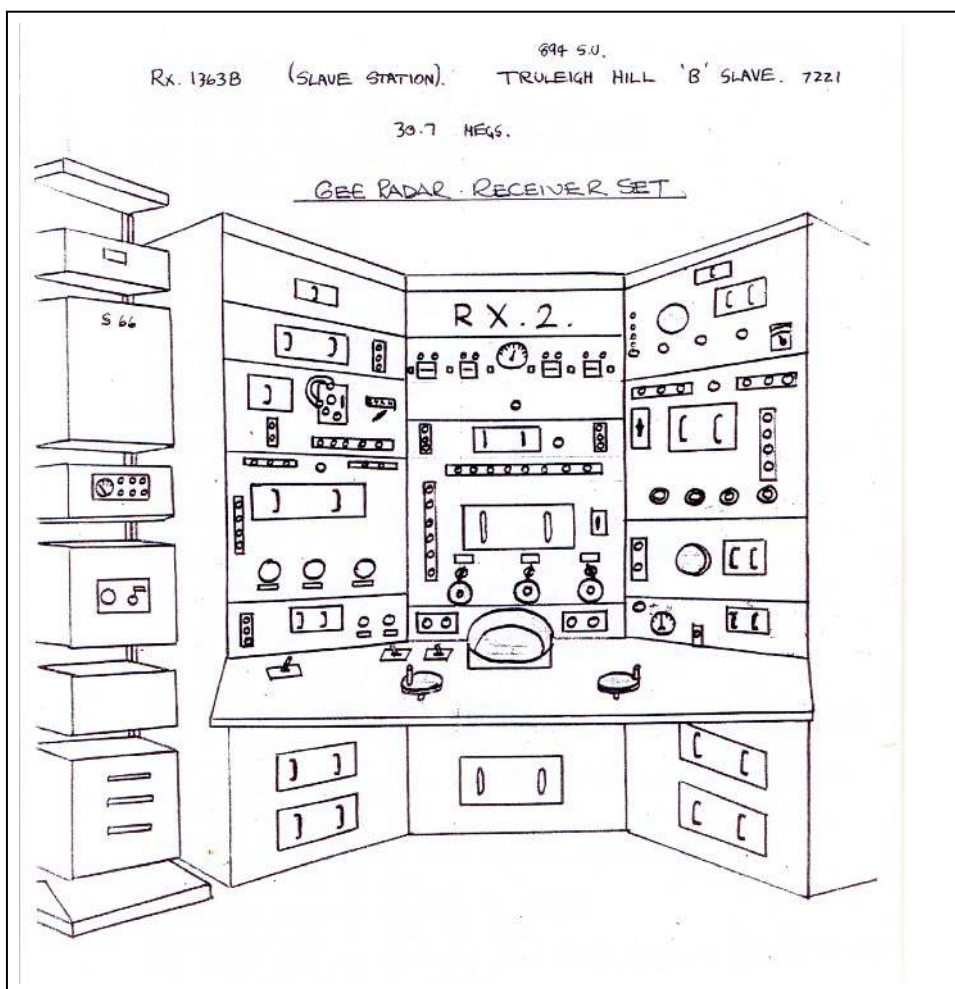 894 S.U.
RX. 1363B (SLAVE STATION). TRULEIGH HILL 'B' SLAVE. 7221
30.7 MEGS.
GEE RADAR. RECEIVER SET
RX.2.
S 66